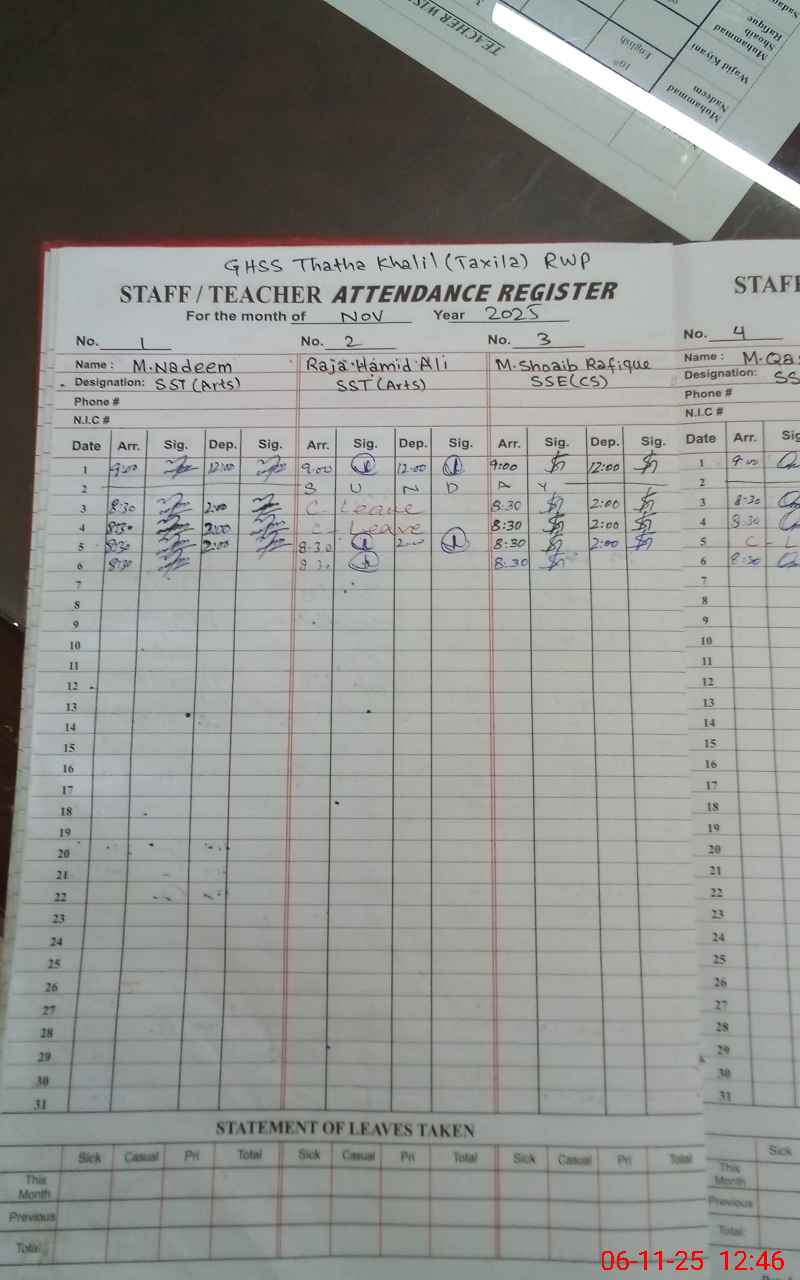 TEACHER WIS
10th
English
Muhammad Nadeem
Wajid Kiyani
Muhammad Shoaib Rafique
GHSS Thatha Khalil (Taxila) RWP
STAFF / TEACHER ATTENDANCE REGISTER
For the month of Nov Year 2025
No. 1 No. 2 No. 3
Name : M.Nadeem Raja Hamid Ali M.Shoaib Rafique
Designation: SST (Arts) SST (Arts) SSE(CS)
Phone #
N.I.C #
Date Arr. Sig. Dep. Sig. Arr. Sig. Dep. Sig. Arr. Sig. Dep. Sig.
1 9:00 12:00 9:00 12:00 9:00 12:00
2 S U N D A Y
3 8:30 2:00 C. Leave 8:30 2:00
4 8:30 2:00 C - Leave 8:30 2:00
5 8:30 2:00 8:30 2:00 8:30 2:00
6 8:30 8:30 8:30
7
8
9
10
11
12
13
14
15
16
17
18
19
20
21
22
23
24
25
26
27
28
29
30
31
STATEMENT OF LEAVES TAKEN
Sick Casual Pri Total Sick Casual Pri Total Sick Casual Pri Total
This Month
Previous
Total
STAFF
No. 4
Name : M.Qas
Designation: SS
Phone #
N.I.C #
Date Arr. Sig
1 9:00
2
3 8:30
4 8:30
5 C - L
6 8:30
7
8
9
10
11
12
13
14
15
16
17
18
19
20
21
22
23
24
25
26
27
28
29
30
31
Sick
This Month
Previous
Total
06-11-25 12:46